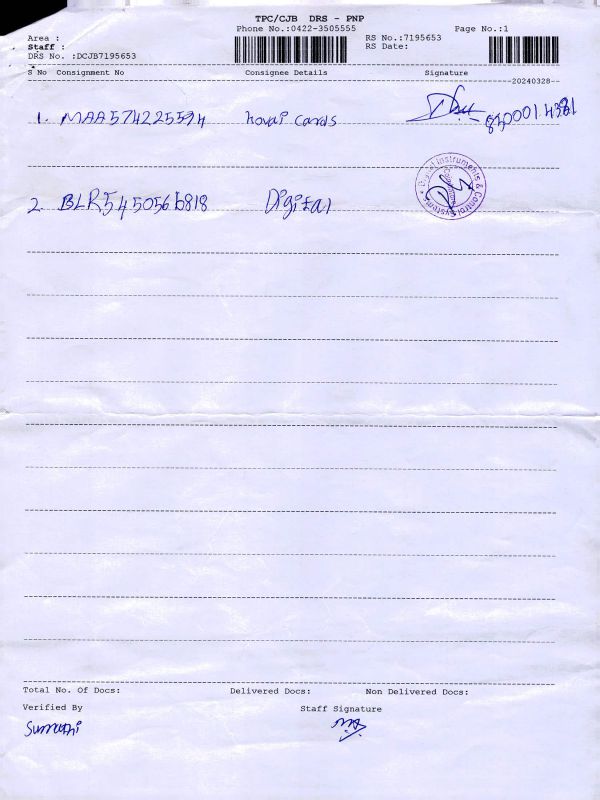 TPC/CJB DRS - PNP
Phone No.:0422-3505555
Page No.:1
Area :
RS No.:7195653
Staff :
RS Date:
DRS No. :DCJB7195653
S No Consignment No Consignee Details Signature
20240328
1. MAA574225594 Kovai cards
Digital Instruments & Control Systems
2. BLR545056 6818 Digital
Total No. Of Docs: Delivered Docs: Non Delivered Docs:
Verified By Staff Signature
Sumathi